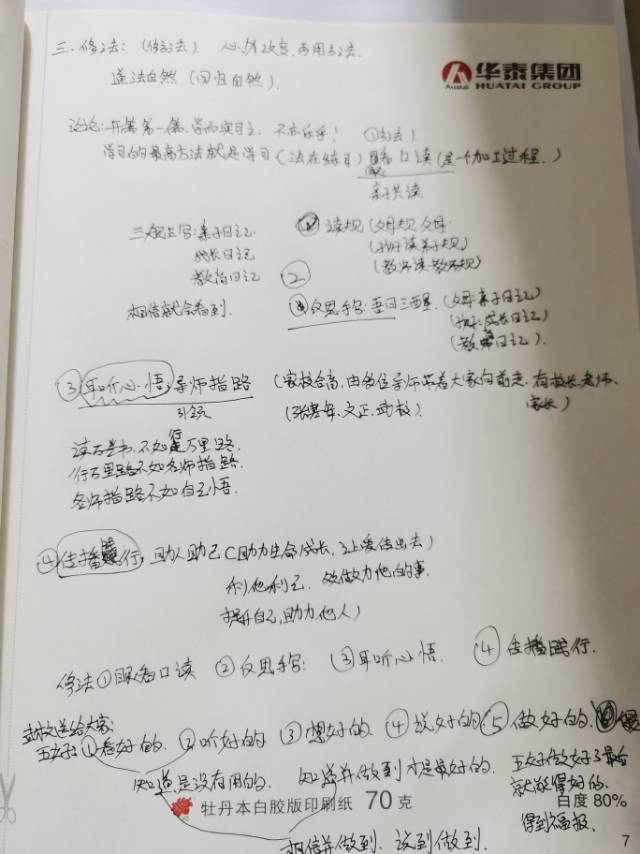 三、修法:(修方法) 心为改变,两用方法.
华泰集团
Huatai HUATAI GROUP
道法自然(回归自然).
论论:开篇第一篇,学而实习之,不亦乐乎! ①方法!
学习的最高方法就是学习(法在练习)眼看口读(是一个加工过程.)
亲子共读
三级三宫:亲子日记
成长日记
教尚日记
相信就会看到.
② 读规(父母规 父母.
(孩子读弟子规)
(教师读教师规)
②
反思手写:每日三省.(父母:亲子日记)
(孩子:成长日记)
(教师日记).
③耳听心悟,导师指路(家校合育,由各位导师带着大家向前走.有校长,老师.
引领
家长)
读万卷书.不如行万里路.
行万里路不如名师指路.
名师指路不如自己悟.
④传播践行,助人助己(助力生命成长,让爱传出去)
利他利己. 多做为他的事.
提升自己,助力他人)
修法①眼看口读 ②反思手写: ③耳听心悟. ④传播践行.
送给大家:
五好:①看好的.②听好的 ③想好的.④说好的.⑤做好的.
知道是没有用的. 知道并做到才是最好的.
五好做好了最后
就获得好的.
得到福报.
相信并做到. 说到做到.
牡丹本白胶版印刷纸 70克
白度 80%
7